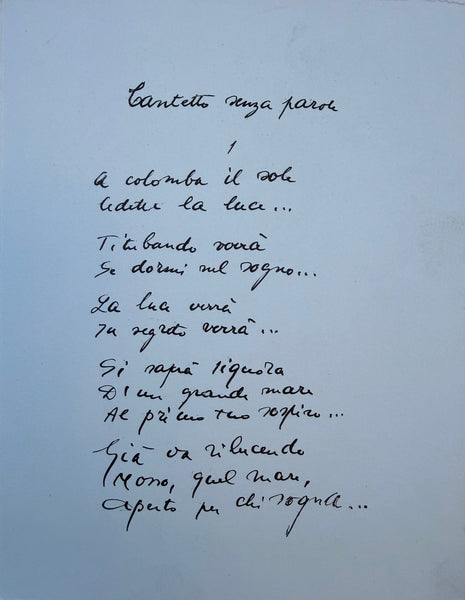 Cantetto senza parole
1
A colomba il sole
Cedette la luce...
Titubando verrà
Se dormi nel sogno...
La luce verrà
In segreto verrà...
Si saprà signora
D'un grande mare
Al primo tuo sospiro...
Già va rilucendo
Mosso, quel mare,
Aperto per chi sogna...